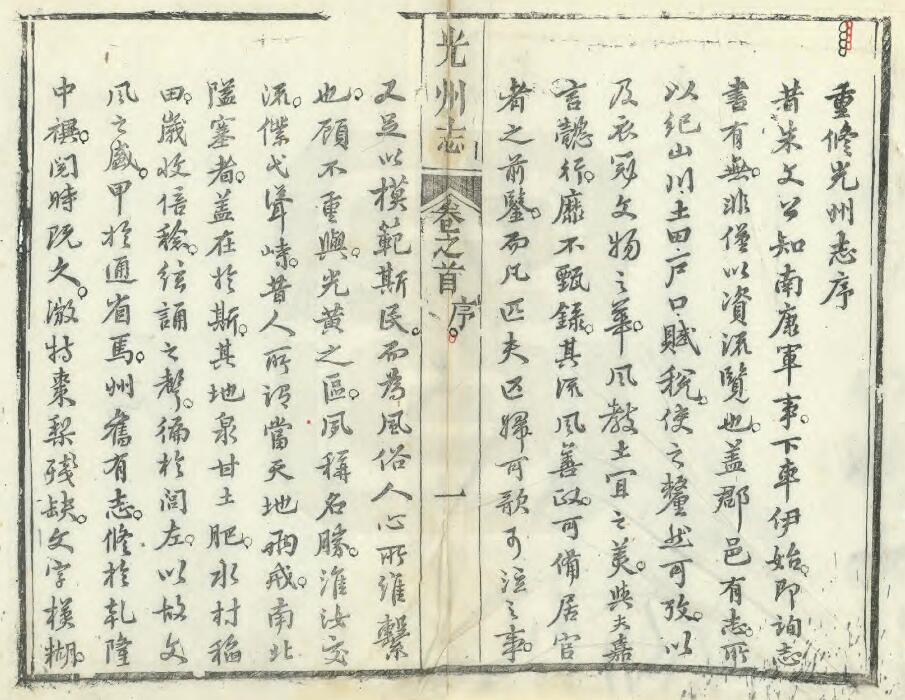 重修光州志序
昔朱文公知南康軍事。下車伊始。即詢志
書有無。非僅以資流覽也。蓋郡邑有志。所
以紀山川土田戶口賦稅。使之釐然可攷。以
及衣冠文物之華。風教土宜之美。與夫嘉
言懿行。靡不甄錄。其流風善政。可備居官
者之前鑒。而凡匹夫匹婦可歌可泣之事。
光州志
卷之首
序。
一
又足以模範斯民。而為風俗人心所維繫
也。顧不重與。光黃之區。夙稱名勝。淮汝交
流。僕弋聳峙。昔人所謂當天地兩戒。南北
隘塞者。蓋在於斯。其地泉甘土肥。水村稻
田。歲收倍稔。絃誦之聲。徧於閭左。以故文
風之盛。甲於通省焉。州舊有志。修於乾隆
中禩。閱時既久。微特棗梨殘缺。文字模糊。